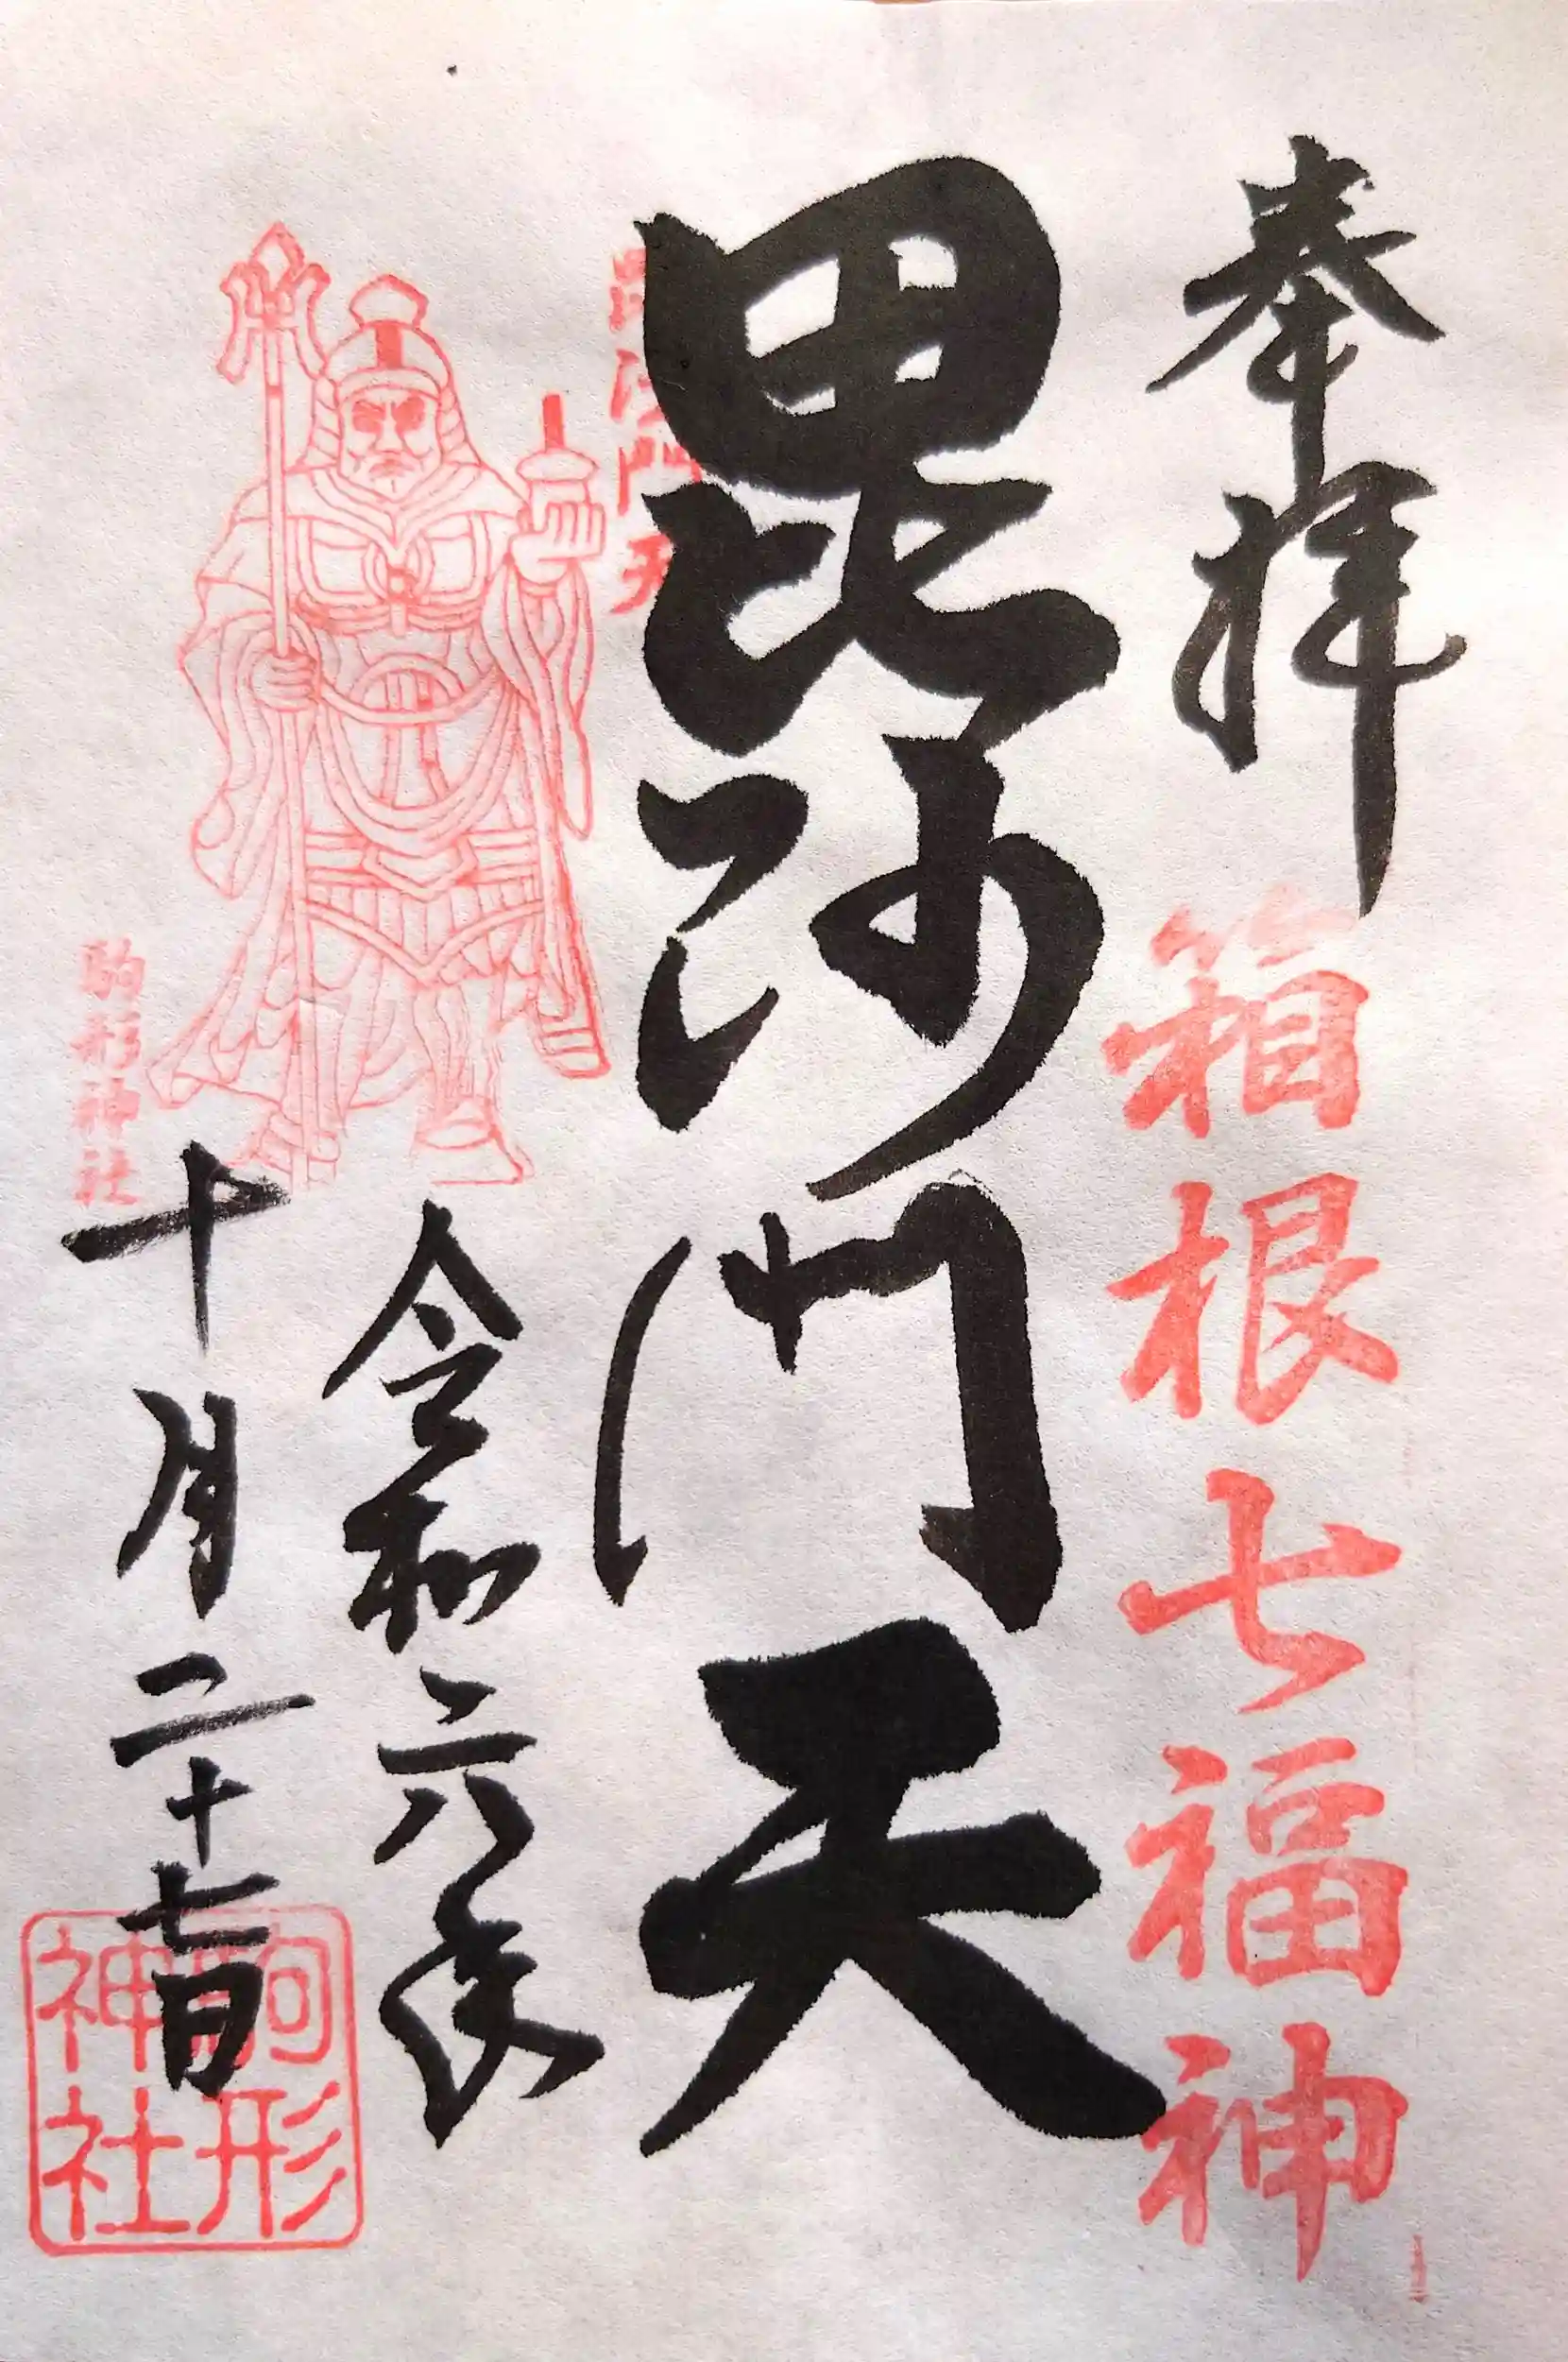 奉拝
箱根七福神
毘沙門天
毘沙門天
令和六年
駒形神社
十月二十七日
駒形
神社